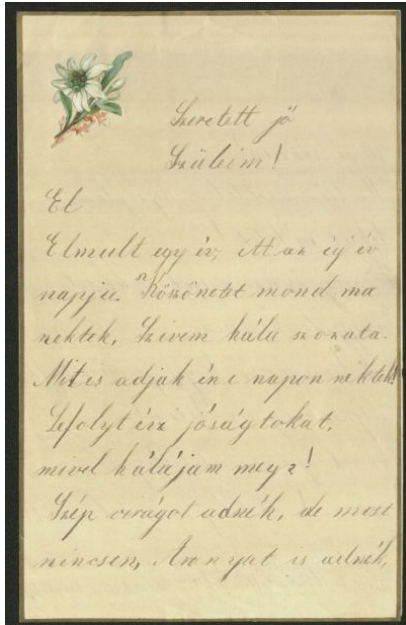 Szeretett jó
Szüleim!
El
Elmult egy év, itt az új év
napja. Köszönetet mond ma
nektek, Szivem hála szozata.
Mit is adjak én e napon néktek!
Lefolyt évi jóságtokat,
mivel háláljam meg?!
Szép virágot adnék, de most
nincsen, Aranyat is adnék,